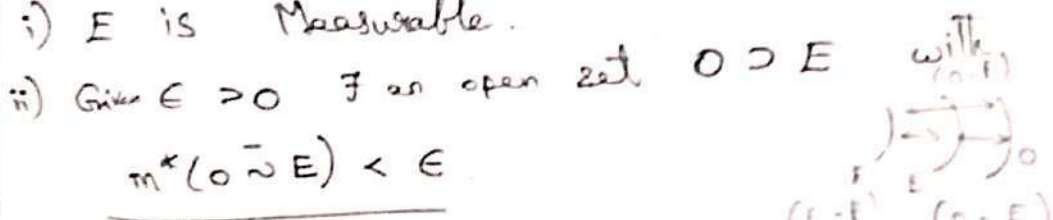 i) E is Measurable.
ii) Given ∈ >0 ∃ an open set O ⊃ E with
m*(O ~ E) < ∈